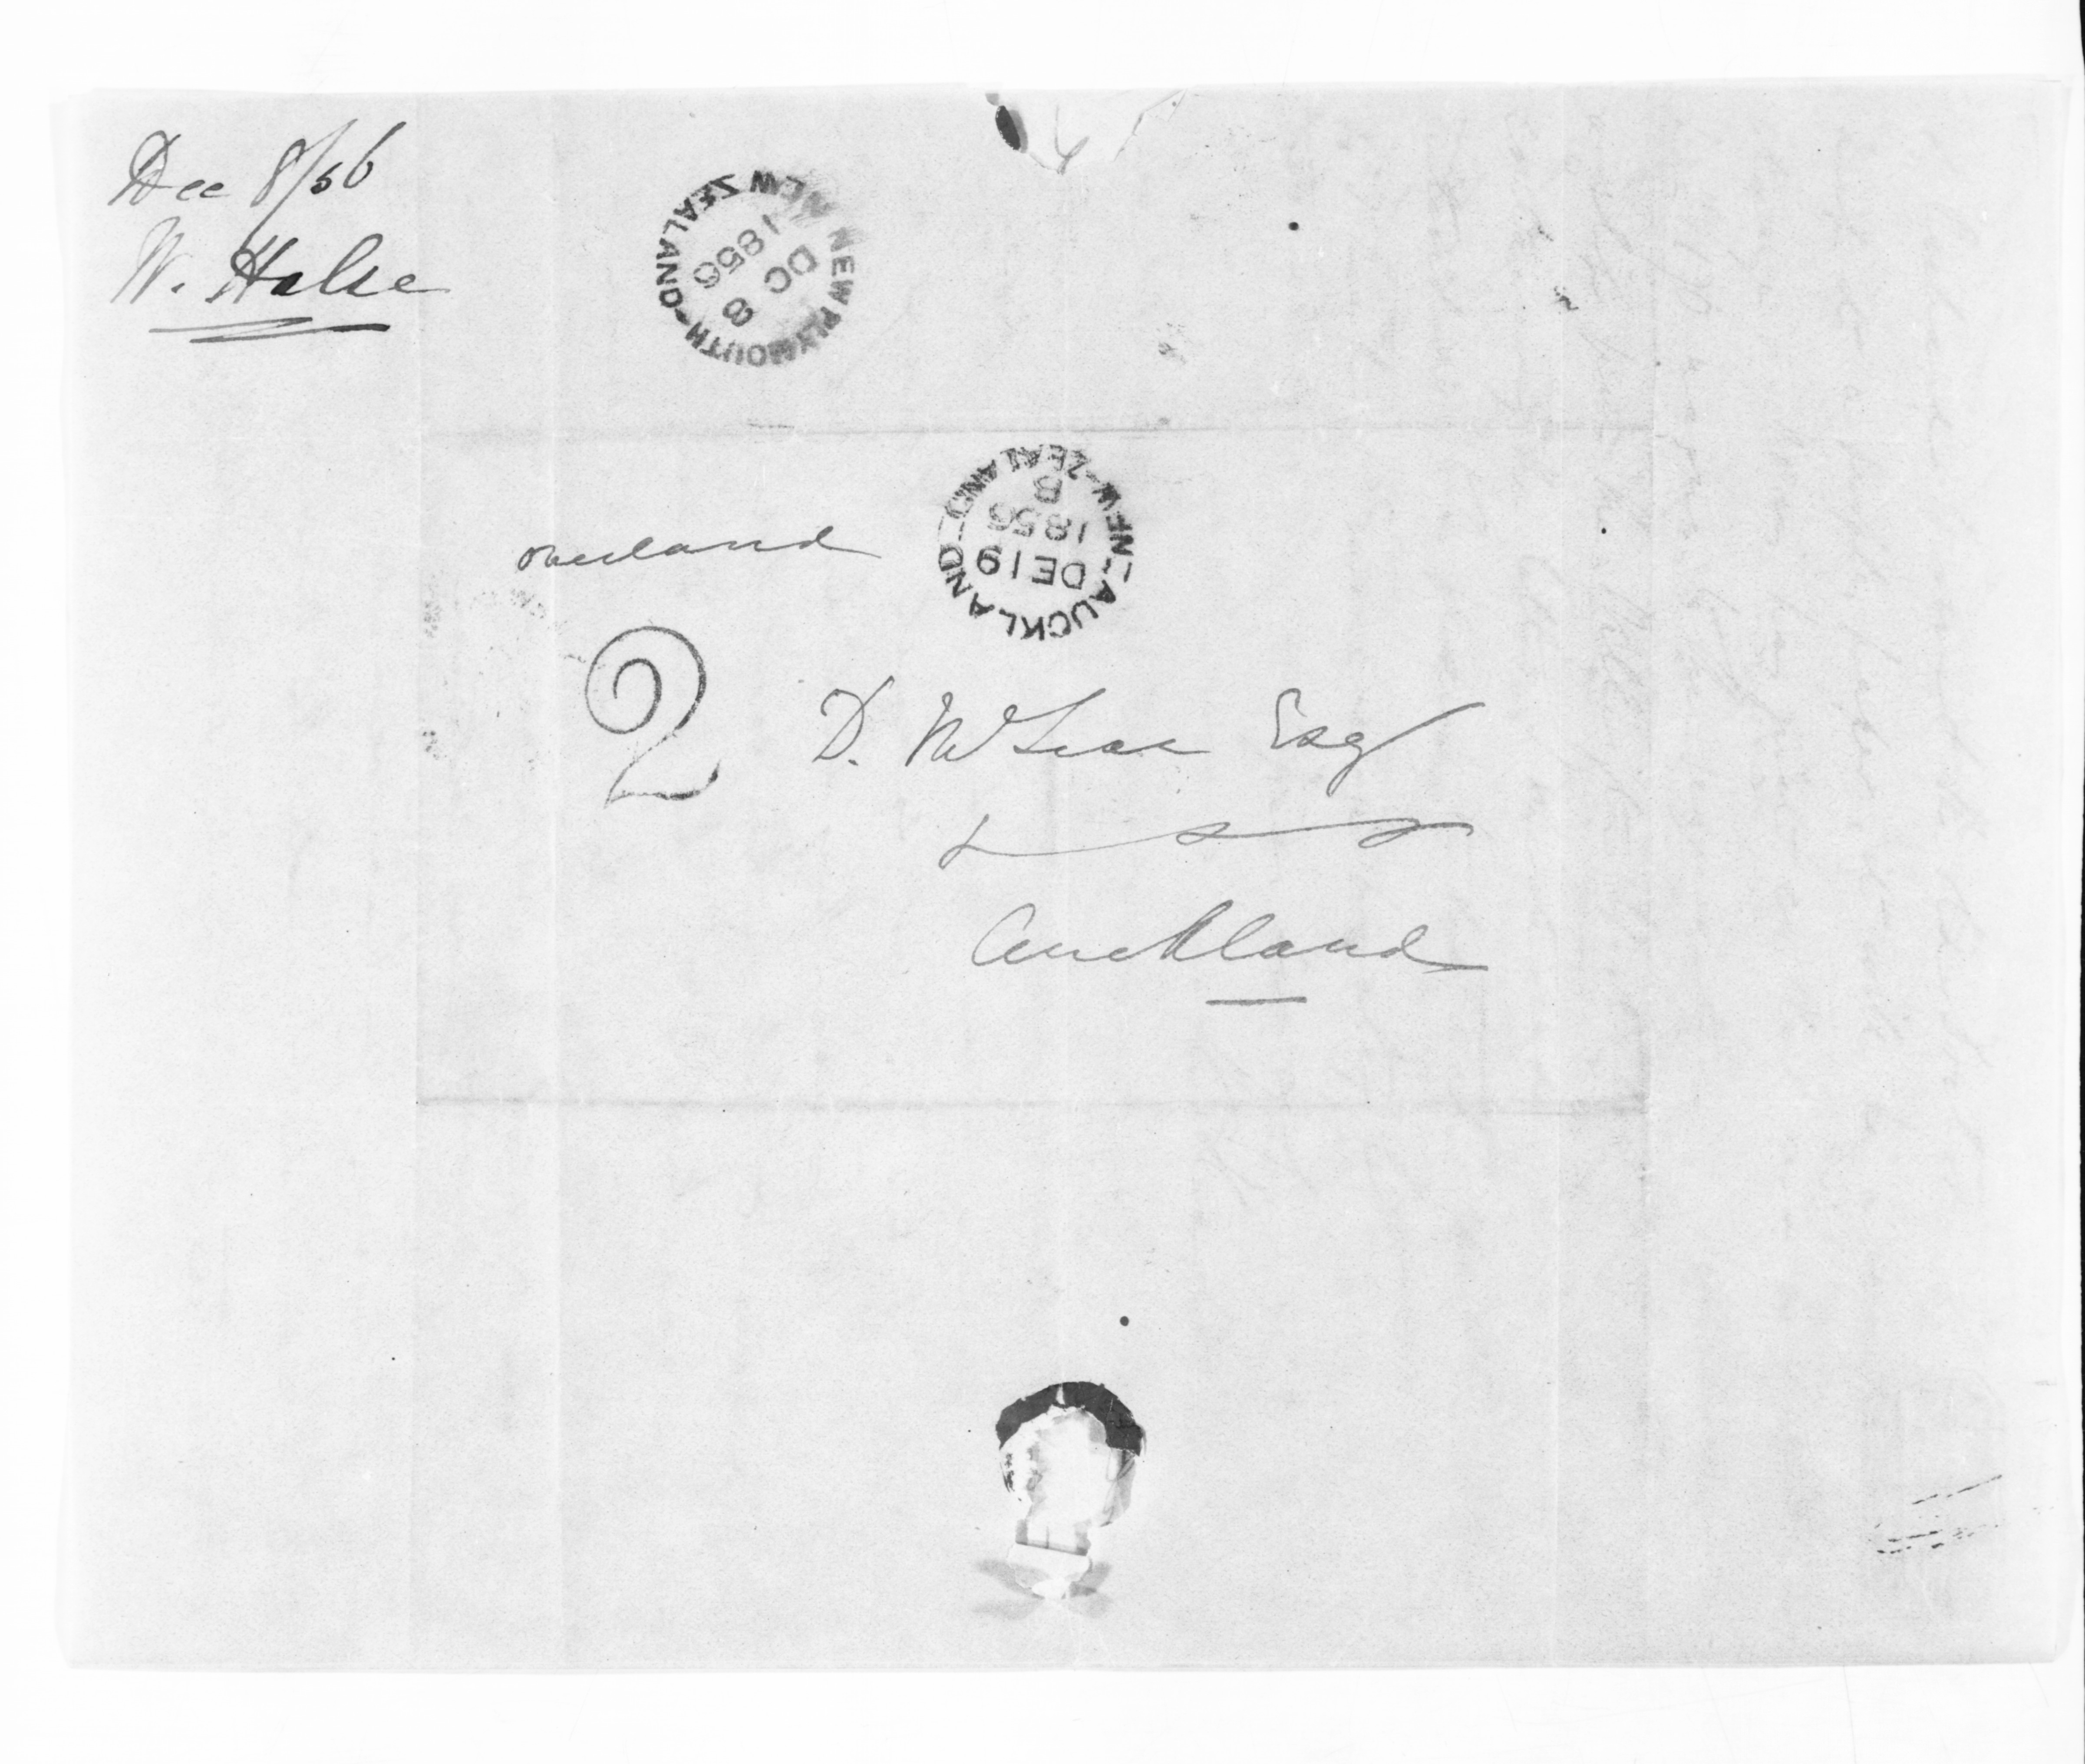 Dec 8/56
W. Halse
NEW PLYMOUTH - NEW ZEALAND
DC 8
1856
AUCKLAND - NEW-ZEALAND
DE 19
1856
B
overland
2
D. McLean Esq
Auckland